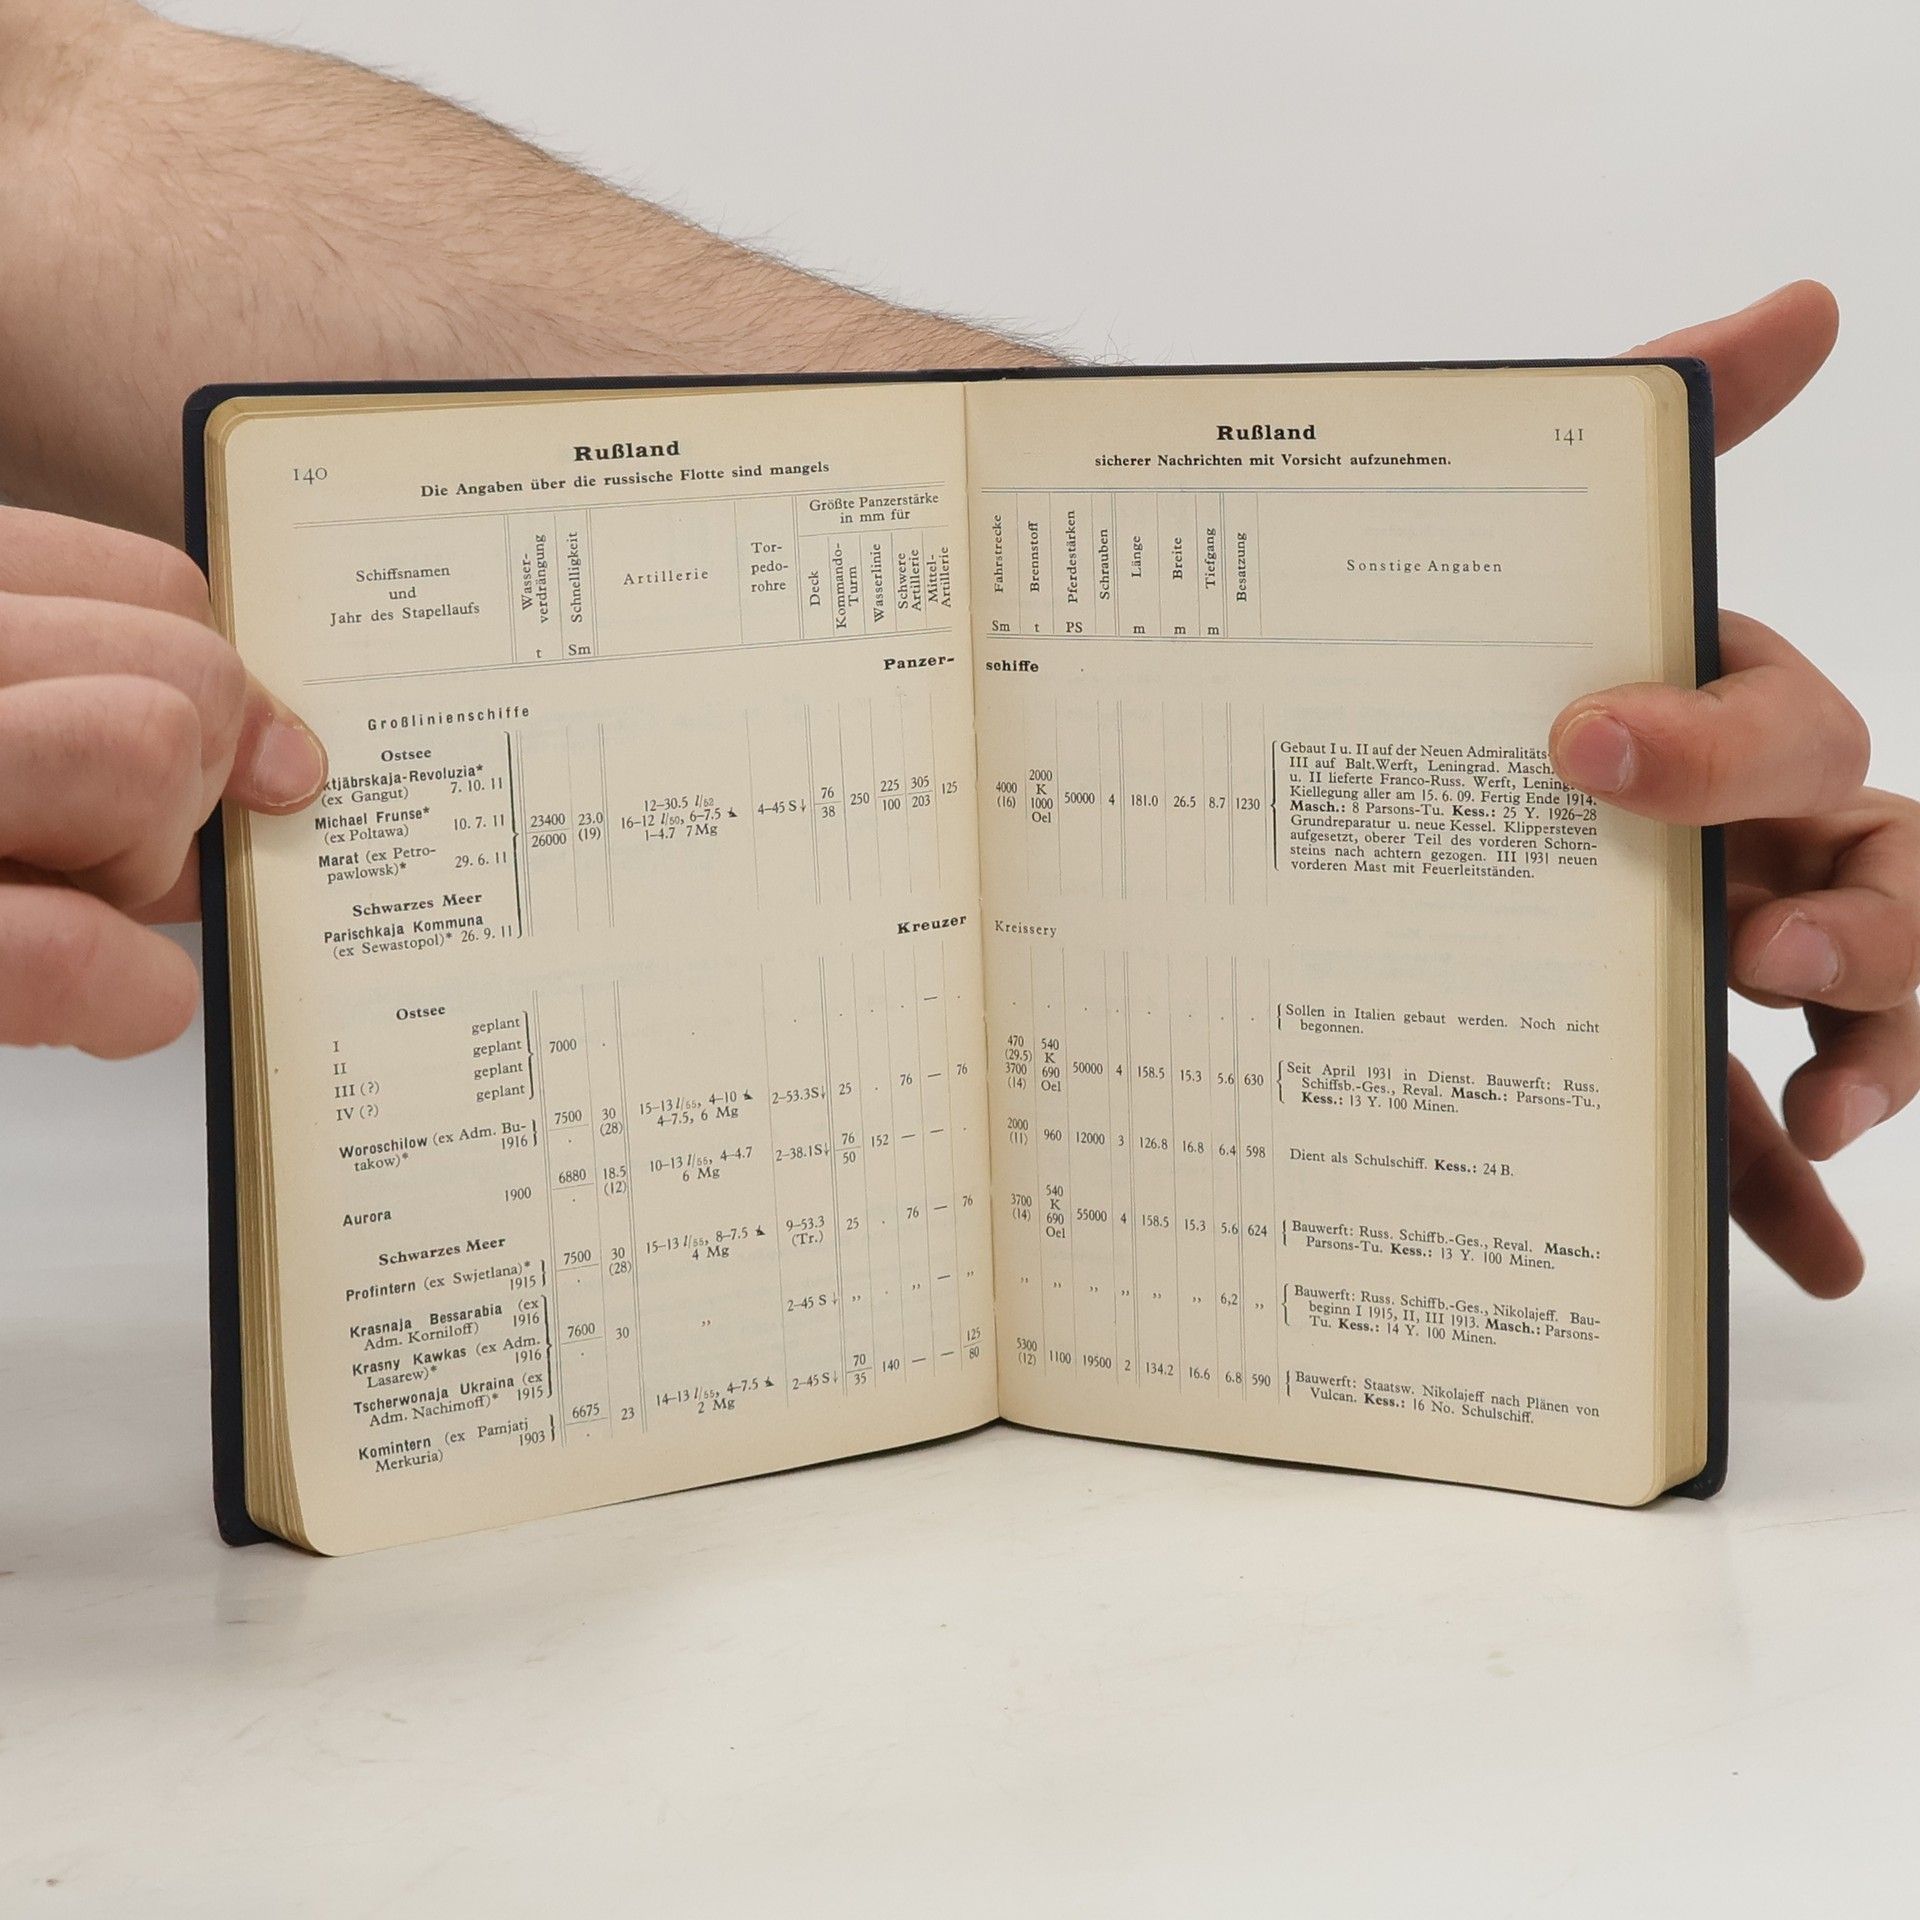 140
Rußland
Die Angaben über die russische Flotte sind mangels
Schiffsnamen
und
Jahr des Stapellaufs
Wasser-
verdrängung
t
Schnelligkeit
Sm
Artillerie
Tor-
pedo-
rohre
Größte Panzerstärke
in mm für
Deck
Kommando-
Turm
Wasserlinie
Schwere
Artillerie
Mittel-
Artillerie
Panzer-
Großlinienschiffe
Ostsee
ktjäbrskaja-Revoluzia*
(ex Gangut) 7. 10. 11
Michael Frunse*
(ex Poltawa) 10. 7. 11
Marat (ex Petro-
pawlowsk)* 29. 6. 11
Schwarzes Meer
Parischkaja Kommuna
(ex Sewastopol)* 26. 9. 11
23400
26000
23.0
(19)
12–30.5 l/52
16–12 l/50, 6–7.5
1–4.7 7 Mg
4–45 S↓
76
38
250
225
100
305
203
125
Kreuzer
Ostsee
I geplant
II geplant
III (?) geplant
IV (?) geplant
7000 . . . . . . — .
Woroschilow (ex Adm. Bu-
takow)* 1916
7500
.
30
(28)
15–13 l/55, 4–10
4–7.5, 6 Mg
2–53.3S↓ 25 . 76 — 76
Aurora 1900
6880
.
18.5
(12)
10–13 l/55, 4–4.7
6 Mg
2–38.1S↓
76
50
152 — — .
Schwarzes Meer
Profintern (ex Swjetlana)*
1915
7500
.
30
(28)
15–13 l/55, 8–7.5
4 Mg
9–53.3
(Tr.)
25 . 76 — 76
Krasnaja Bessarabia (ex
Adm. Korniloff) 1916
Krasny Kawkas (ex Adm.
Lasarew)* 1916
Tscherwonaja Ukraina (ex
Adm. Nachimoff)* 1915
7600
.
30 „ 2–45 S↓ „ . „ — „
Komintern (ex Pamjatj
Merkuria) 1903
6675
.
23
14–13 l/55, 4–7.5
2 Mg
2–45 S↓
70
35
140 — —
125
80
Rußland
141
sicherer Nachrichten mit Vorsicht aufzunehmen.
Fahrstrecke
Sm
Brennstoff
t
Pferdestärken
PS
Schrauben
Länge
m
Breite
m
Tiefgang
m
Besatzung
Sonstige Angaben
schiffe
4000
(16)
2000
K
1000
Oel
50000 4 181.0 26.5 8.7 1230
Gebaut I u. II auf der Neuen Admiralitäts-
III auf Balt.Werft, Leningrad. Masch.
u. II lieferte Franco-Russ. Werft, Lening
Kiellegung aller am 15. 6. 09. Fertig Ende 1914.
Masch.: 8 Parsons-Tu. Kess.: 25 Y. 1926–28
Grundreparatur u. neue Kessel. Klippersteven
aufgesetzt, oberer Teil des vorderen Schorn-
steins nach achtern gezogen. III 1931 neuen
vorderen Mast mit Feuerleitständen.
Kreissery
. . . . . . . .
Sollen in Italien gebaut werden. Noch nicht
begonnen.
470
(29.5)
3700
(14)
540
K
690
Oel
50000 4 158.5 15.3 5.6 630
Seit April 1931 in Dienst. Bauwerft: Russ.
Schiffsb.-Ges., Reval. Masch.: Parsons-Tu.,
Kess.: 13 Y. 100 Minen.
2000
(11)
960 12000 3 126.8 16.8 6.4 598
Dient als Schulschiff. Kess.: 24 B.
3700
(14)
540
K
690
Oel
55000 4 158.5 15.3 5.6 624
Bauwerft: Russ. Schiffb.-Ges., Reval. Masch.:
Parsons-Tu. Kess.: 13 Y. 100 Minen.
„ „ „ „ „ „ 6,2 „
Bauwerft: Russ. Schiffb.-Ges., Nikolajeff. Bau-
beginn I 1915, II, III 1913. Masch.: Parsons-
Tu. Kess.: 14 Y. 100 Minen.
5300
(12)
1100 19500 2 134.2 16.6 6.8 590
Bauwerft: Staatsw. Nikolajeff nach Plänen von
Vulcan. Kess.: 16 No. Schulschiff.